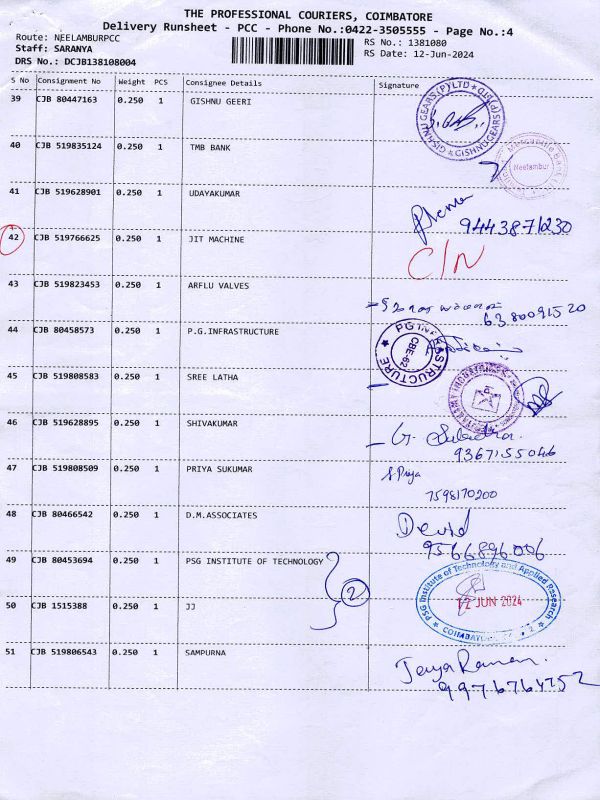 THE PROFESSIONAL COURIERS, COIMBATORE
Delivery Runsheet - PCC - Phone No.:0422-3505555 - Page No.:4
Route: NEELAMBURPCC
RS No.: 1381080
Staff: SARANYA
RS Date: 12-Jun-2024
DRS No.: DCJB138108004
S No Consignment No Weight PCS Consignee Details Signature
39 CJB 80447163 0.250 1 GISHNU GEERI
GISHNU GEARS (P) LTD
40 CJB 519835124 0.250 1 TMB BANK
Mercantile Bank
Neelambur
41 CJB 519628901 0.250 1 UDAYAKUMAR
9443871230
42 CJB 519766625 0.250 1 JIT MACHINE
C/N
43 CJB 519823453 0.250 1 ARFLU VALVES
6380091520
44 CJB 80458573 0.250 1 P.G.INFRASTRUCTURE
PG INFRASTRUCTURE
CBE-62
45 CJB 519808583 0.250 1 SREE LATHA
46 CJB 519628895 0.250 1 SHIVAKUMAR
9367155046
47 CJB 519808509 0.250 1 PRIYA SUKUMAR
S Priya
7598170200
48 CJB 80466542 0.250 1 D.M.ASSOCIATES
David
9566896006
49 CJB 80453694 0.250 1 PSG INSTITUTE OF TECHNOLOGY
2
PSG Institute of Technology and Applied Research
12 JUN 2024
50 CJB 1515388 0.250 1 JJ
51 CJB 519806543 0.250 1 SAMPURNA
Jeya Raman.
9976764752